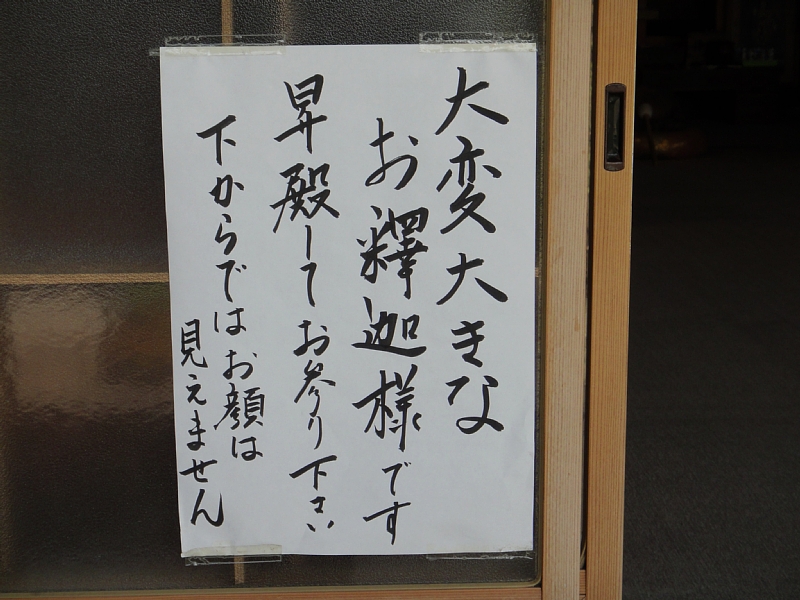 大変大きな
お釋迦様です
昇殿してお参り下さい
下からではお顔は
見えません